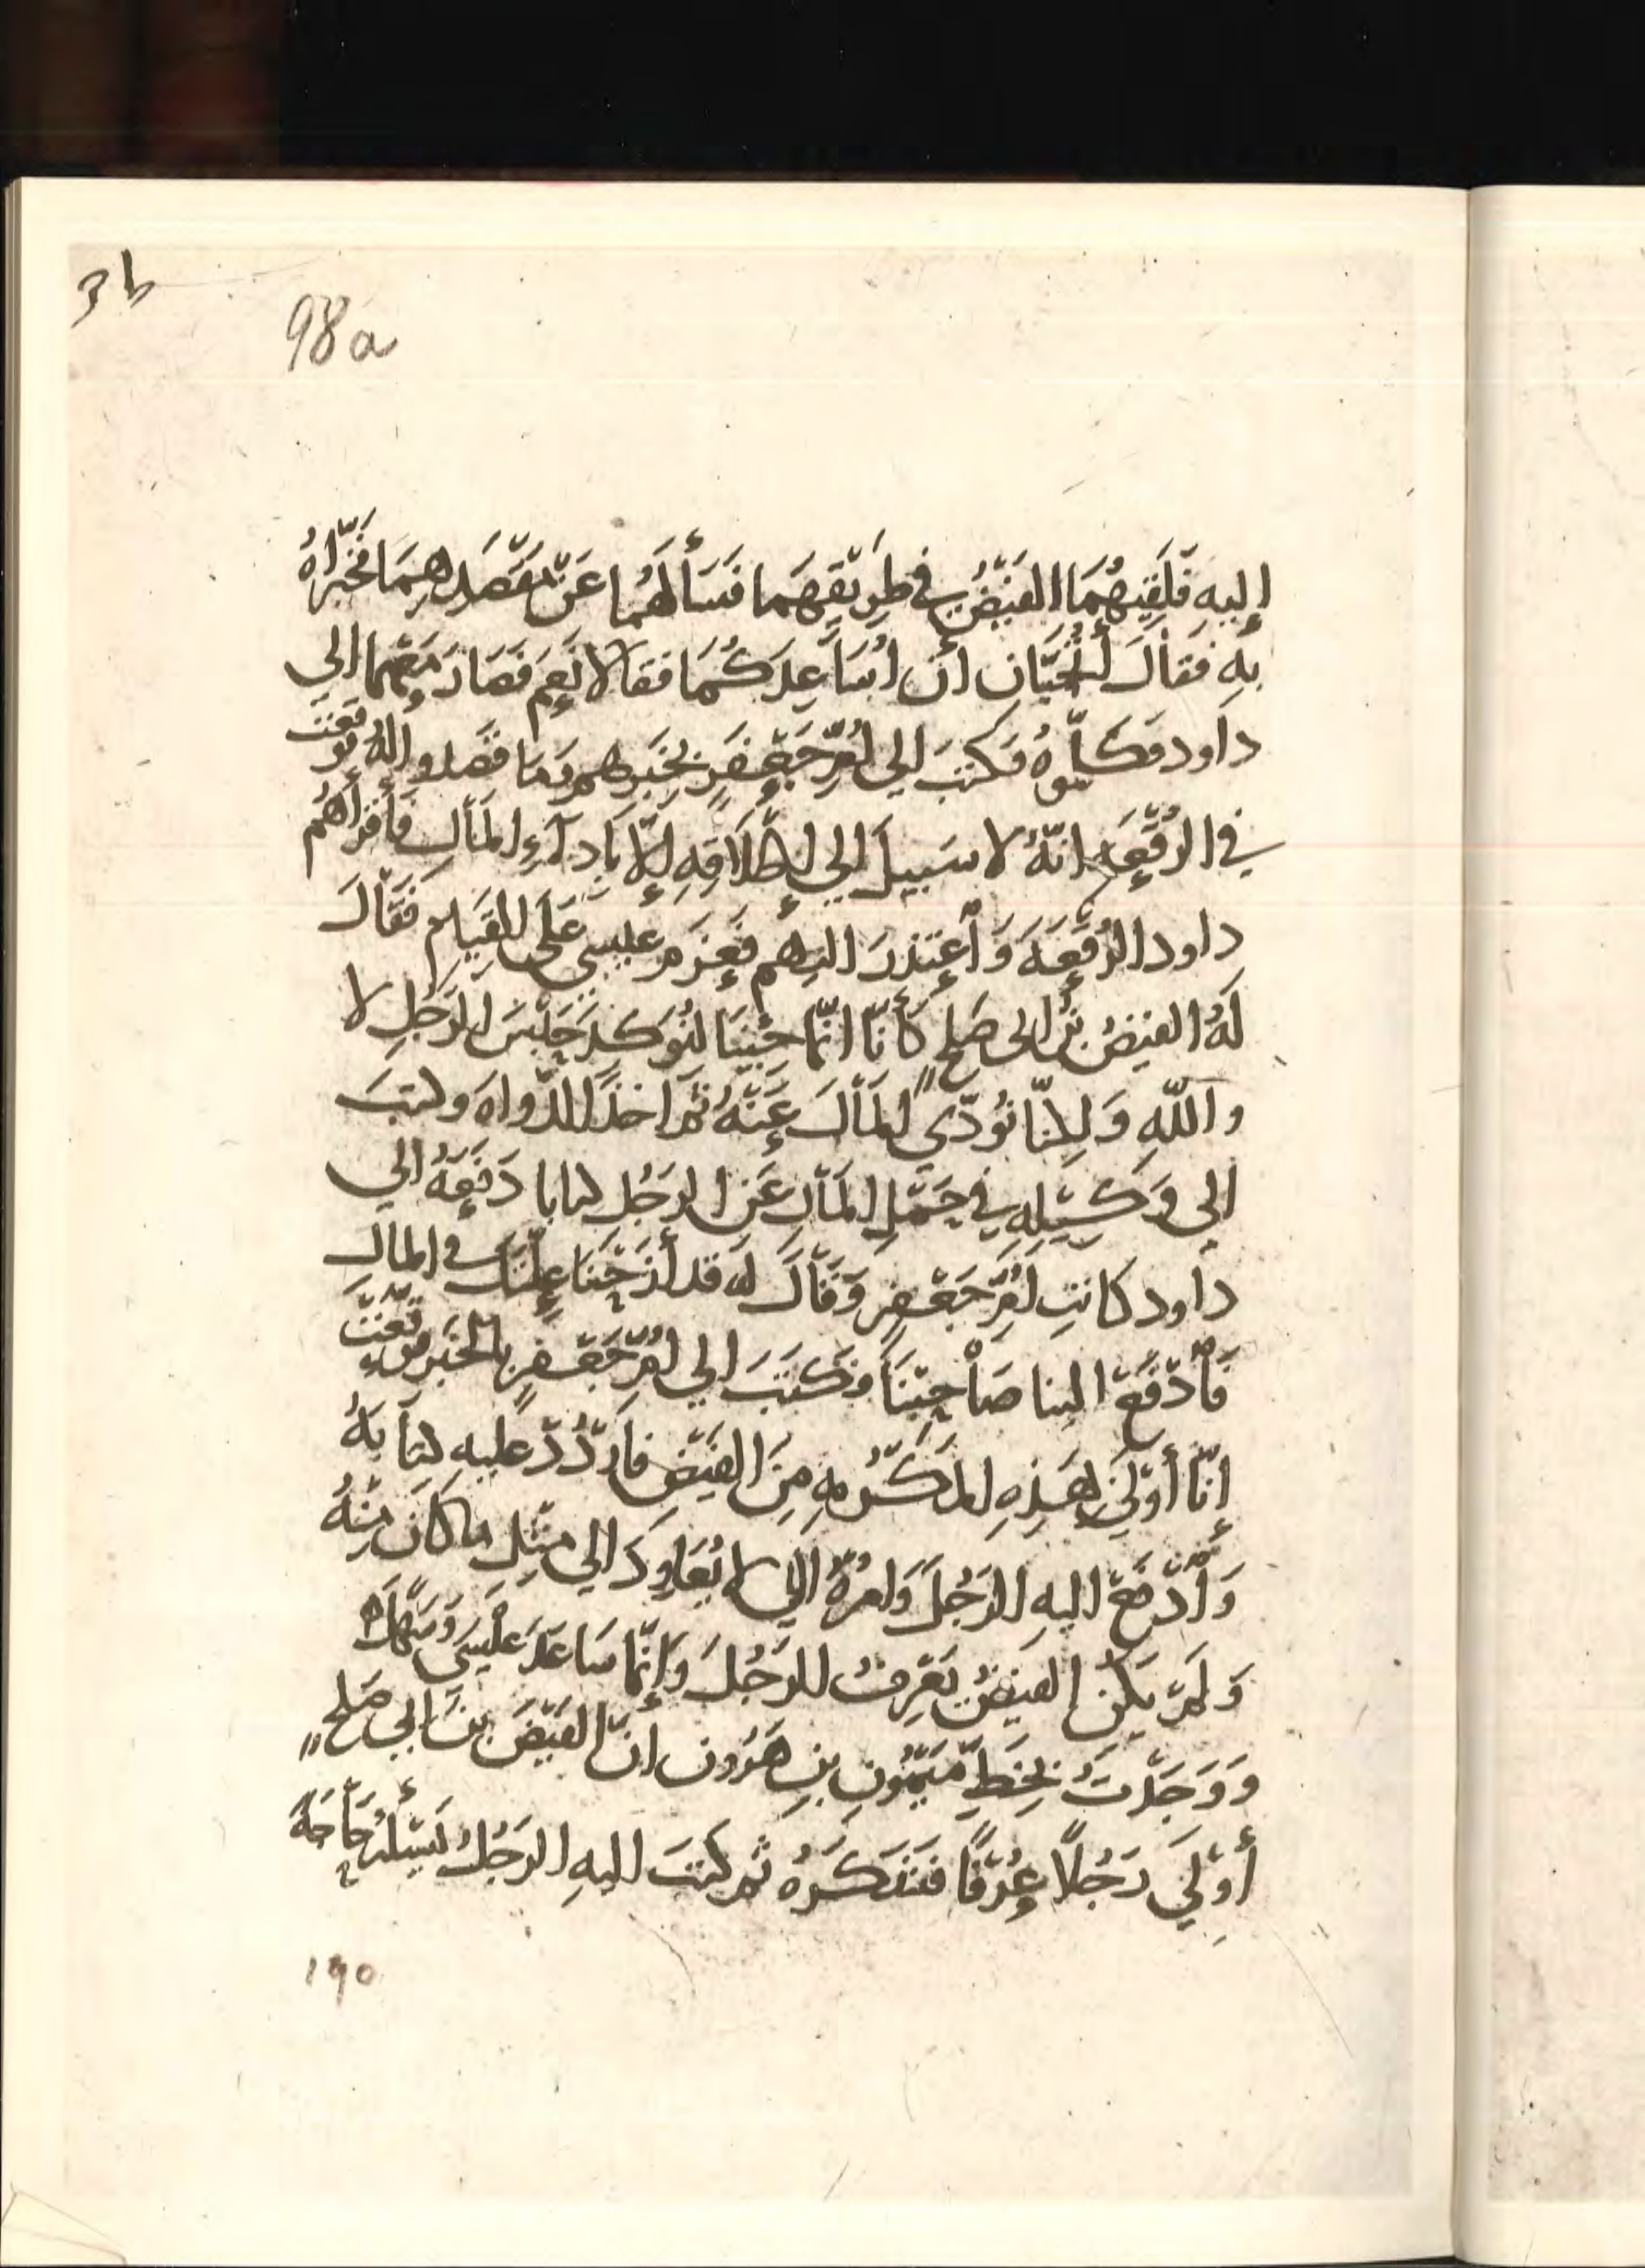 3b
98a
إِليهِ فَلَقِيَهُمَا الفَيْضُ في طَرِيْقِهِمَا فَسَأَلَهُمَا عَنْ مَقْصَدِهِمَا فَخَبَّرَاهُ
بِهِ فَقَالَ أَتُحِبَّانِ أن اُسَاعِدَكُمَا فقالا نَعَم فَصَارَ مَعَهُمَا الي
داود فكلّموهُ فكتبَ الي أُمِّ جَعْفَرٍ بِخَبَرِهم وَمَا قصدو الهُ فوقّعت
في الرُقْعَة انّهُ لا سَبيلَ الي إِطْلاقِهِ إِلّا بِأَدَاءِ المَالِ فأَقرأهُم
داود الرُقْعَةَ وَأعْتذرَ اليهم فعَزَمَ عيسى عَلى القيَامِ فَقَالَ
لَهُ الفيضُ بْنُ ابى صَلحٍ كَأَنّا انّما جئنَا لنُوَكدَ حَبْسَ الرَجُلِ لا
واللهِ وَلكنّا نُوَدّي المَالَ عَنْهُ ثم اخذَ الدَّواهَ وكتبَ
الى وَكيْلِهِ في حَمْلِ المَالِ عَنِ الرَجُلِ كتابا دَفَعَهُ الي
داود كاتِبِ أُمِّ جَعْفرٍ وَقَالَ له قد أزَحْنَا عِلّتَكَ في المال
فَأْدْفَعْ الينا صَاحِبَنَا فكتَبَ الي أُمِّ جَعْفَرٍ بالخَبَرِ فوقّعَتْ
إِنّا أَوْلَي بِهَذِهِ المَكرُمهِ مِنَ الفَيْضِ فارْدُدْ عليه كتَابَهُ
وَأدْفَعْ اليهِ الرَجُلَ وَامُرهُ الّا يُعَاوِدَ الي مِثْلِ ما كانَ مِنْهُ
وَلَمْ يَكُنِ الفيْضُ يَعْرِفُ الرَجُلَ وَإِنّمَا سَاعَدَ عيسَى
وَوَجَدْتُ بِخَطِّ مَيْمُونِ بنِ هَرُون انّ الفَيْضَ بنَ ابي صَلحٍ
أَوْلَي رَجُلًا عُرْفًا فَشَكَرَهُ ثم كتبَ اليهِ الرَجُلُ يَسْئلُهُ حَاجَةً
١٩٥